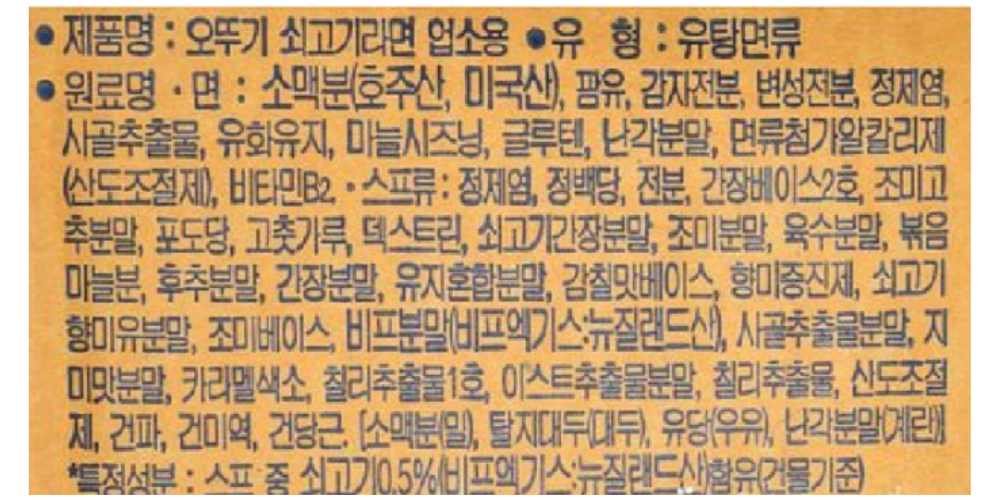 •제품명 : 오뚜기 쇠고기라면 업소용 •유 형 : 유탕면류
•원료명 · 면 : 소맥분(호주산, 미국산), 팜유, 감자전분, 변성전분, 정제염,
사골추출물, 유화유지, 마늘시즈닝, 글루텐, 난각분말, 면류첨가알칼리제
(산도조절제), 비타민B2. ·스프류 : 정제염, 정백당, 전분, 간장베이스2호, 조미고
추분말, 포도당, 고춧가루, 덱스트린, 쇠고기간장분말, 조미분말, 육수분말, 볶음
마늘분, 후추분말, 간장분말, 유지혼합분말, 감칠맛베이스, 향미증진제, 쇠고기
향미유분말, 조미베이스, 비프분말(비프엑기스:뉴질랜드산), 사골추출물분말, 지
미맛분말, 카라멜색소, 칠리추출물1호, 이스트추출물분말, 칠리추출물, 산도조절
제, 건파, 건미역, 건당근. [소맥분(밀), 탈지대두(대두), 유당(우유), 난각분말(계란)]
*특정성분 : 스프 중 쇠고기0.5%(비프엑기스:뉴질랜드산)함유(건물기준)